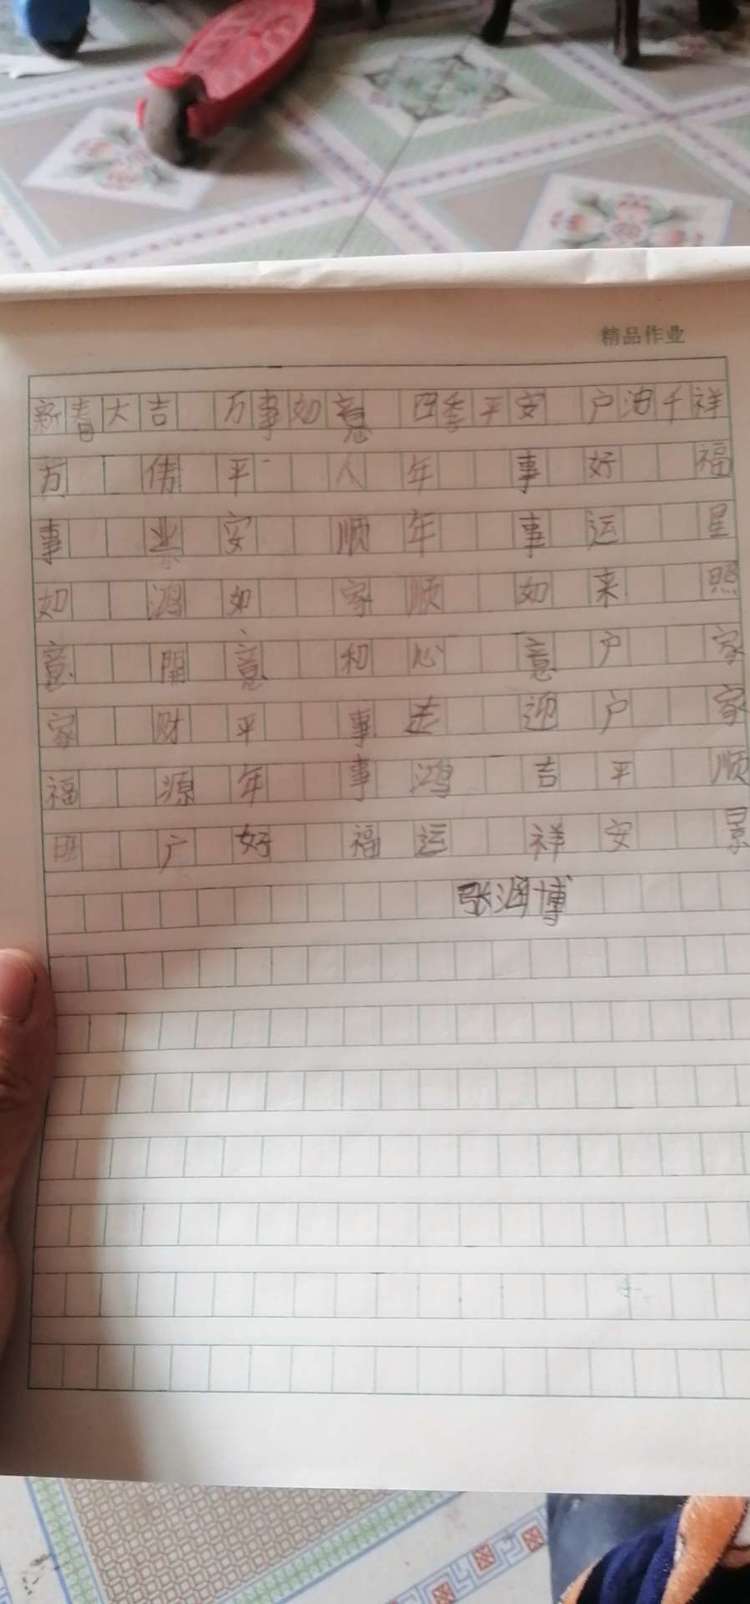 精品作业
新春大吉 万事如意 四季平安 户 千祥
万事如意家福
业鸿開财源广
平安如意平年好
人顺家和事事福
年年顺心走鸿运
事事如意迎吉祥
好运来户户平安
福星照家家顺景
张润博